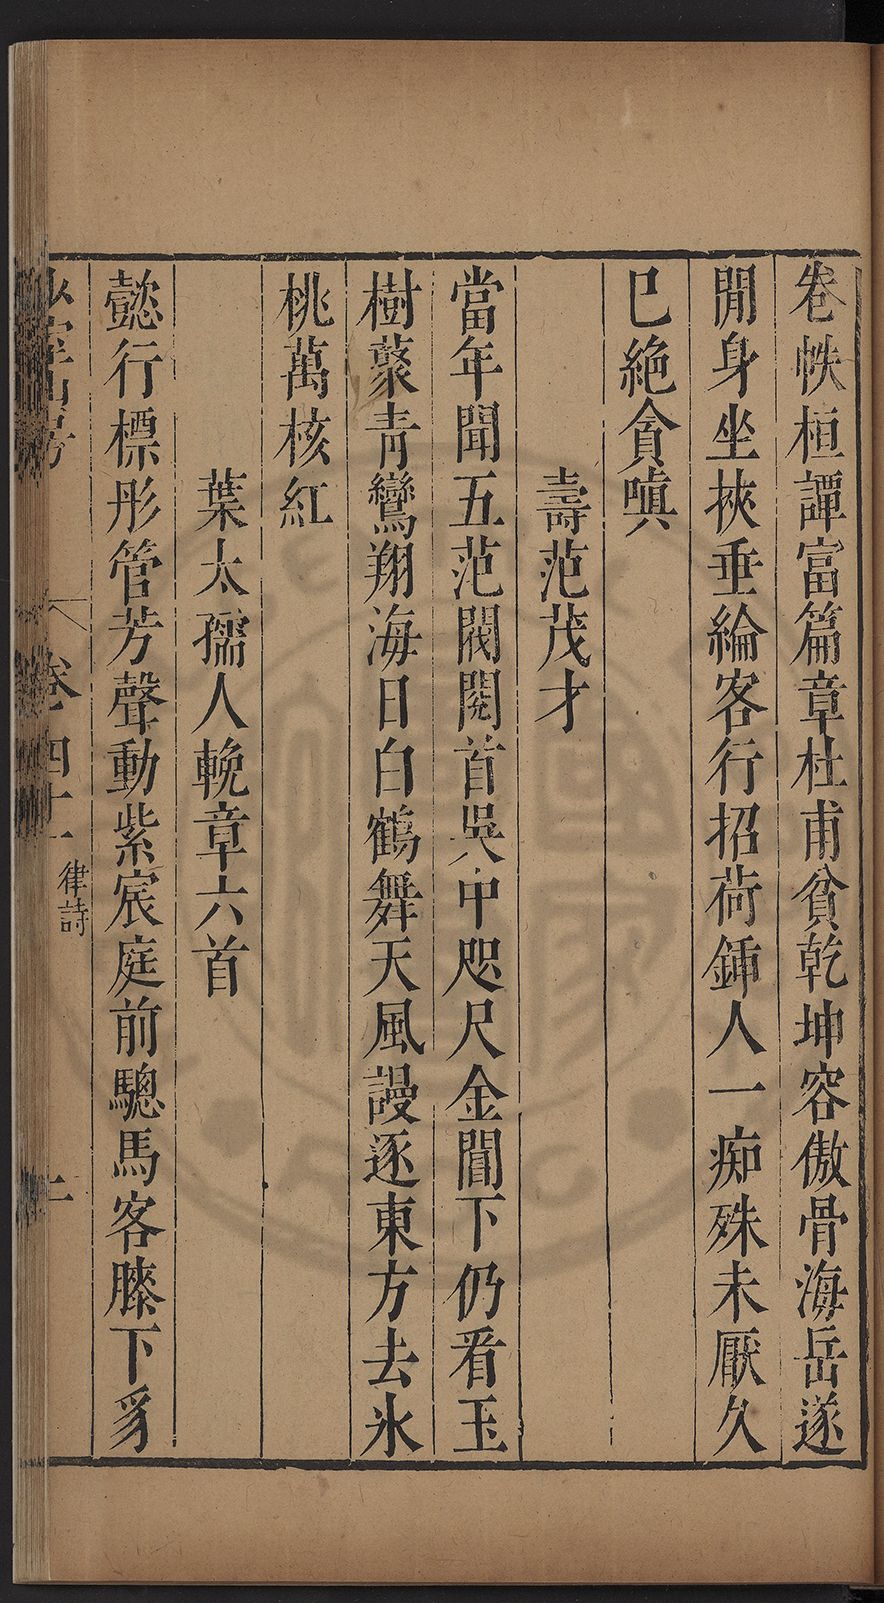 卷帙桓譚富篇章杜甫貧乾坤容傲骨海岳遂
閒身坐挾垂綸客行招荷鍤人一痴殊未厭久
已絕貪嗔
壽范茂才
當年聞五范閥閱首吳中咫尺金閶下仍看玉
樹藂青鸞翔海日白鶴舞天風謾逐東方去氷
桃萬核紅
葉太孺人輓章六首
懿行標彤管芳聲動紫宸庭前驄馬客膝下豸
山房
卷四十
律詩